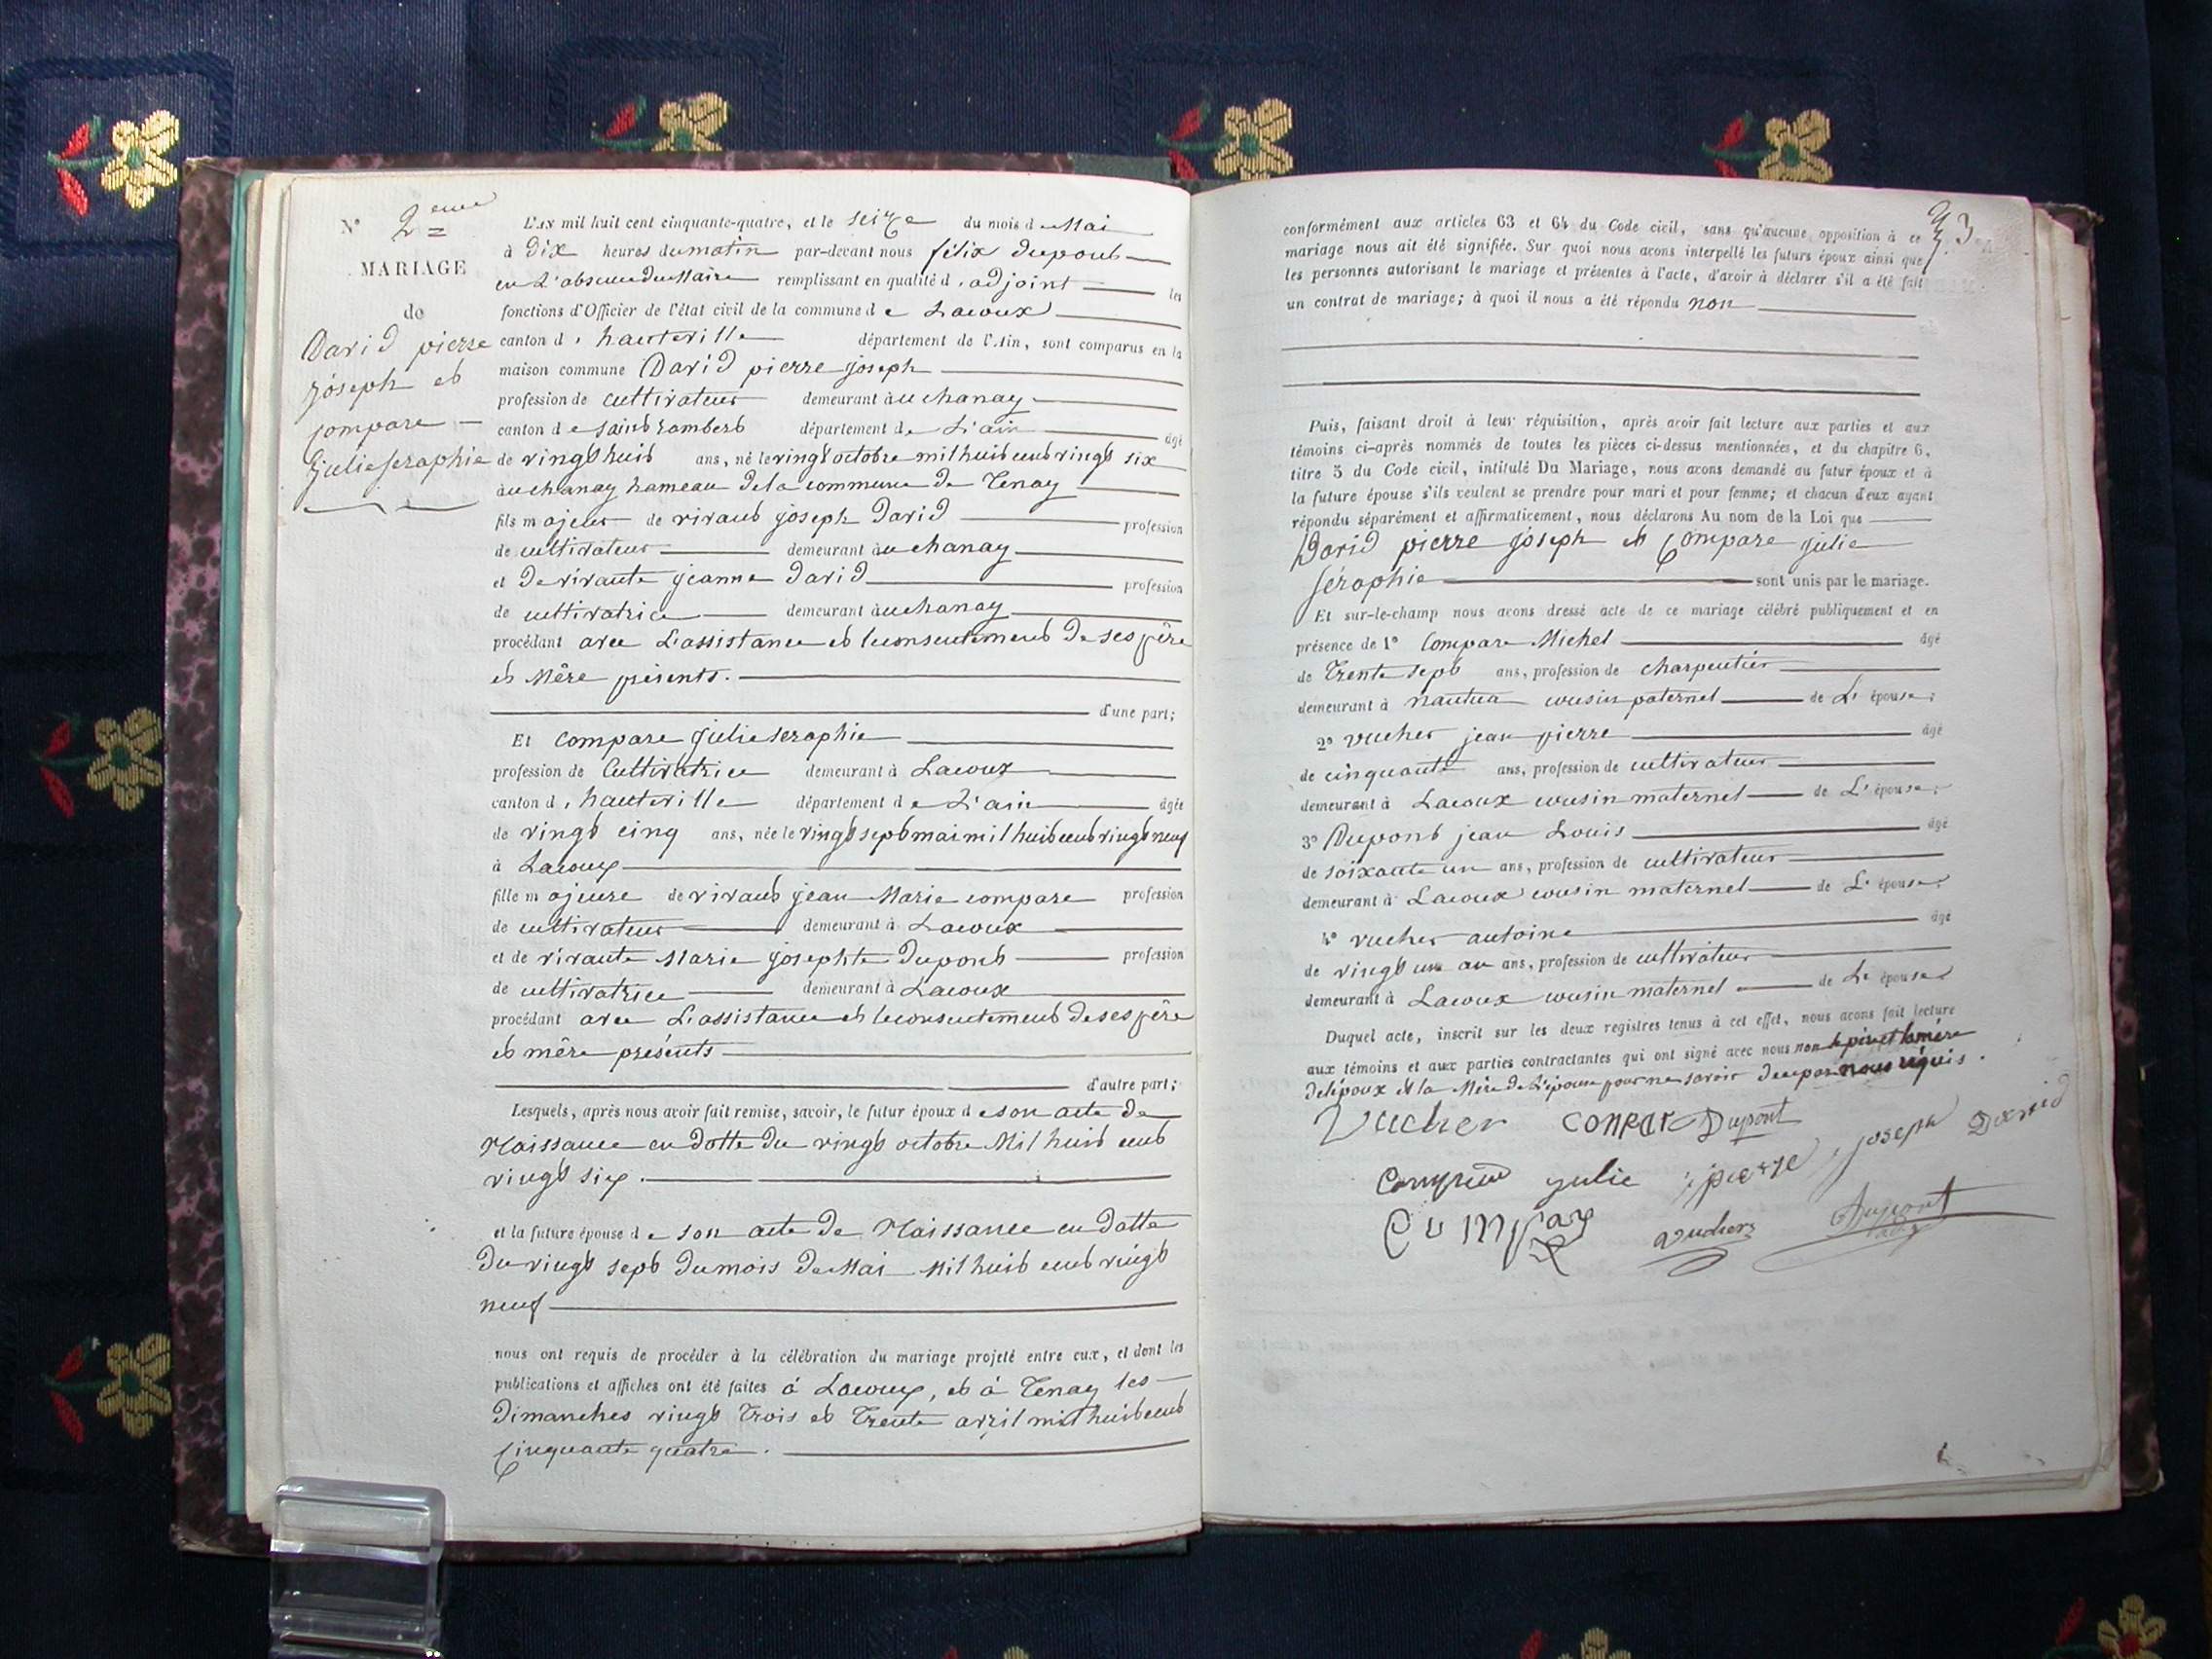 N° 2eme
MARIAGE
de
David pierre
joseph et
compare
julie seraphie
L'AN mil huit cent cinquante-quatre, et le seize du mois de Mai
à Dix heures du matin par-devant nous félix dupont
en L'absence du Maire remplissant en qualité d'adjoint les
fonctions d'Officier de l'état civil de la commune de Lacoux
canton d'hauteville département de l'Ain, sont comparus en la
maison commune David pierre joseph
profession de cultivateur demeurant à uchanay
canton de saint rambert département de L'ain âgé
de vingt huit ans, né le vingt octobre mil huit cent vingt six
à uchanay hameau de la commune de Tenay
fils majeur de vivant joseph David profession
de cultivateur demeurant à uchanay
et de vivante jeanne David profession
de cultivatrice demeurant à uchanay
procédant avec L'assistance et le consentement de ses père
et Mère présents.
d'une part;
Et compare julie seraphie
profession de Cultivatrice demeurant à Lacoux
canton d'hauteville département de L'ain âgée
de vingt cinq ans, née le vingt sept mai mil huit cent vingt neuf
à Lacoux
fille majeure de vivant jean Marie compare profession
de cultivateur demeurant à Lacoux
et de vivante Marie josephte dupont profession
de cultivatrice demeurant à Lacoux
procédant avec L'assistance et le consentement de ses père
et mère présents
d'autre part;
Lesquels, après nous avoir fait remise, savoir, le futur époux de son acte de
Naissance en datte du vingt octobre Mil huit cent
vingt six.
et la future épouse de son acte de Naissance en datte
du vingt sept du mois de Mai Mil huit cent vingt
neuf
nous ont requis de procéder à la célébration du mariage projeté entre eux, et dont les
publications et affiches ont été faites à Lacoux, et à Tenay les
Dimanches vingt trois et trente avril mil huit cent
Cinquante quatre.
conformément aux articles 63 et 64 du Code civil, sans qu'aucune opposition à ce
mariage nous ait été signifiée. Sur quoi nous avons interpellé les futurs époux ainsi que
les personnes autorisant le mariage et présentes à l'acte, d'avoir à déclarer s'il a été fait
un contrat de mariage; à quoi il nous a été répondu non
Puis, faisant droit à leur réquisition, après avoir fait lecture aux parties et aux
témoins ci-après nommés de toutes les pièces ci-dessus mentionnées, et du chapitre 6,
titre 5 du Code civil, intitulé Du Mariage, nous avons demandé au futur époux et à
la future épouse s'ils veulent se prendre pour mari et pour femme; et chacun d'eux ayant
répondu séparément et affirmativement, nous déclarons Au nom de la Loi que
David pierre joseph et Compare julie
séraphie sont unis par le mariage.
Et sur-le-champ nous avons dressé acte de ce mariage célébré publiquement et en
présence de 1° Compare Michel âgé
de Trente sept ans, profession de charpentier
demeurant à nantua cousin paternel de L'épouse;
2° vucher jean pierre âgé
de cinquante ans, profession de cultivateur
demeurant à Lacoux cousin maternel de L'épouse;
3° Dupont jean Louis âgé
de soixante un ans, profession de cultivateur
demeurant à Lacoux cousin maternel de L'épouse;
4° vucher antoine âgé
de vingt un an ans, profession de cultivateur
demeurant à Lacoux cousin maternel de L'épouse
Duquel acte, inscrit sur les deux registres tenus à cet effet, nous avons fait lecture
aux témoins et aux parties contractantes qui ont signé avec nous non le père et la mère
de l'époux et la Mère de L'épouse pour ne savoir de ce par nous réquis.
Vucher Dupont
julie pierre joseph David
vucher Dupont